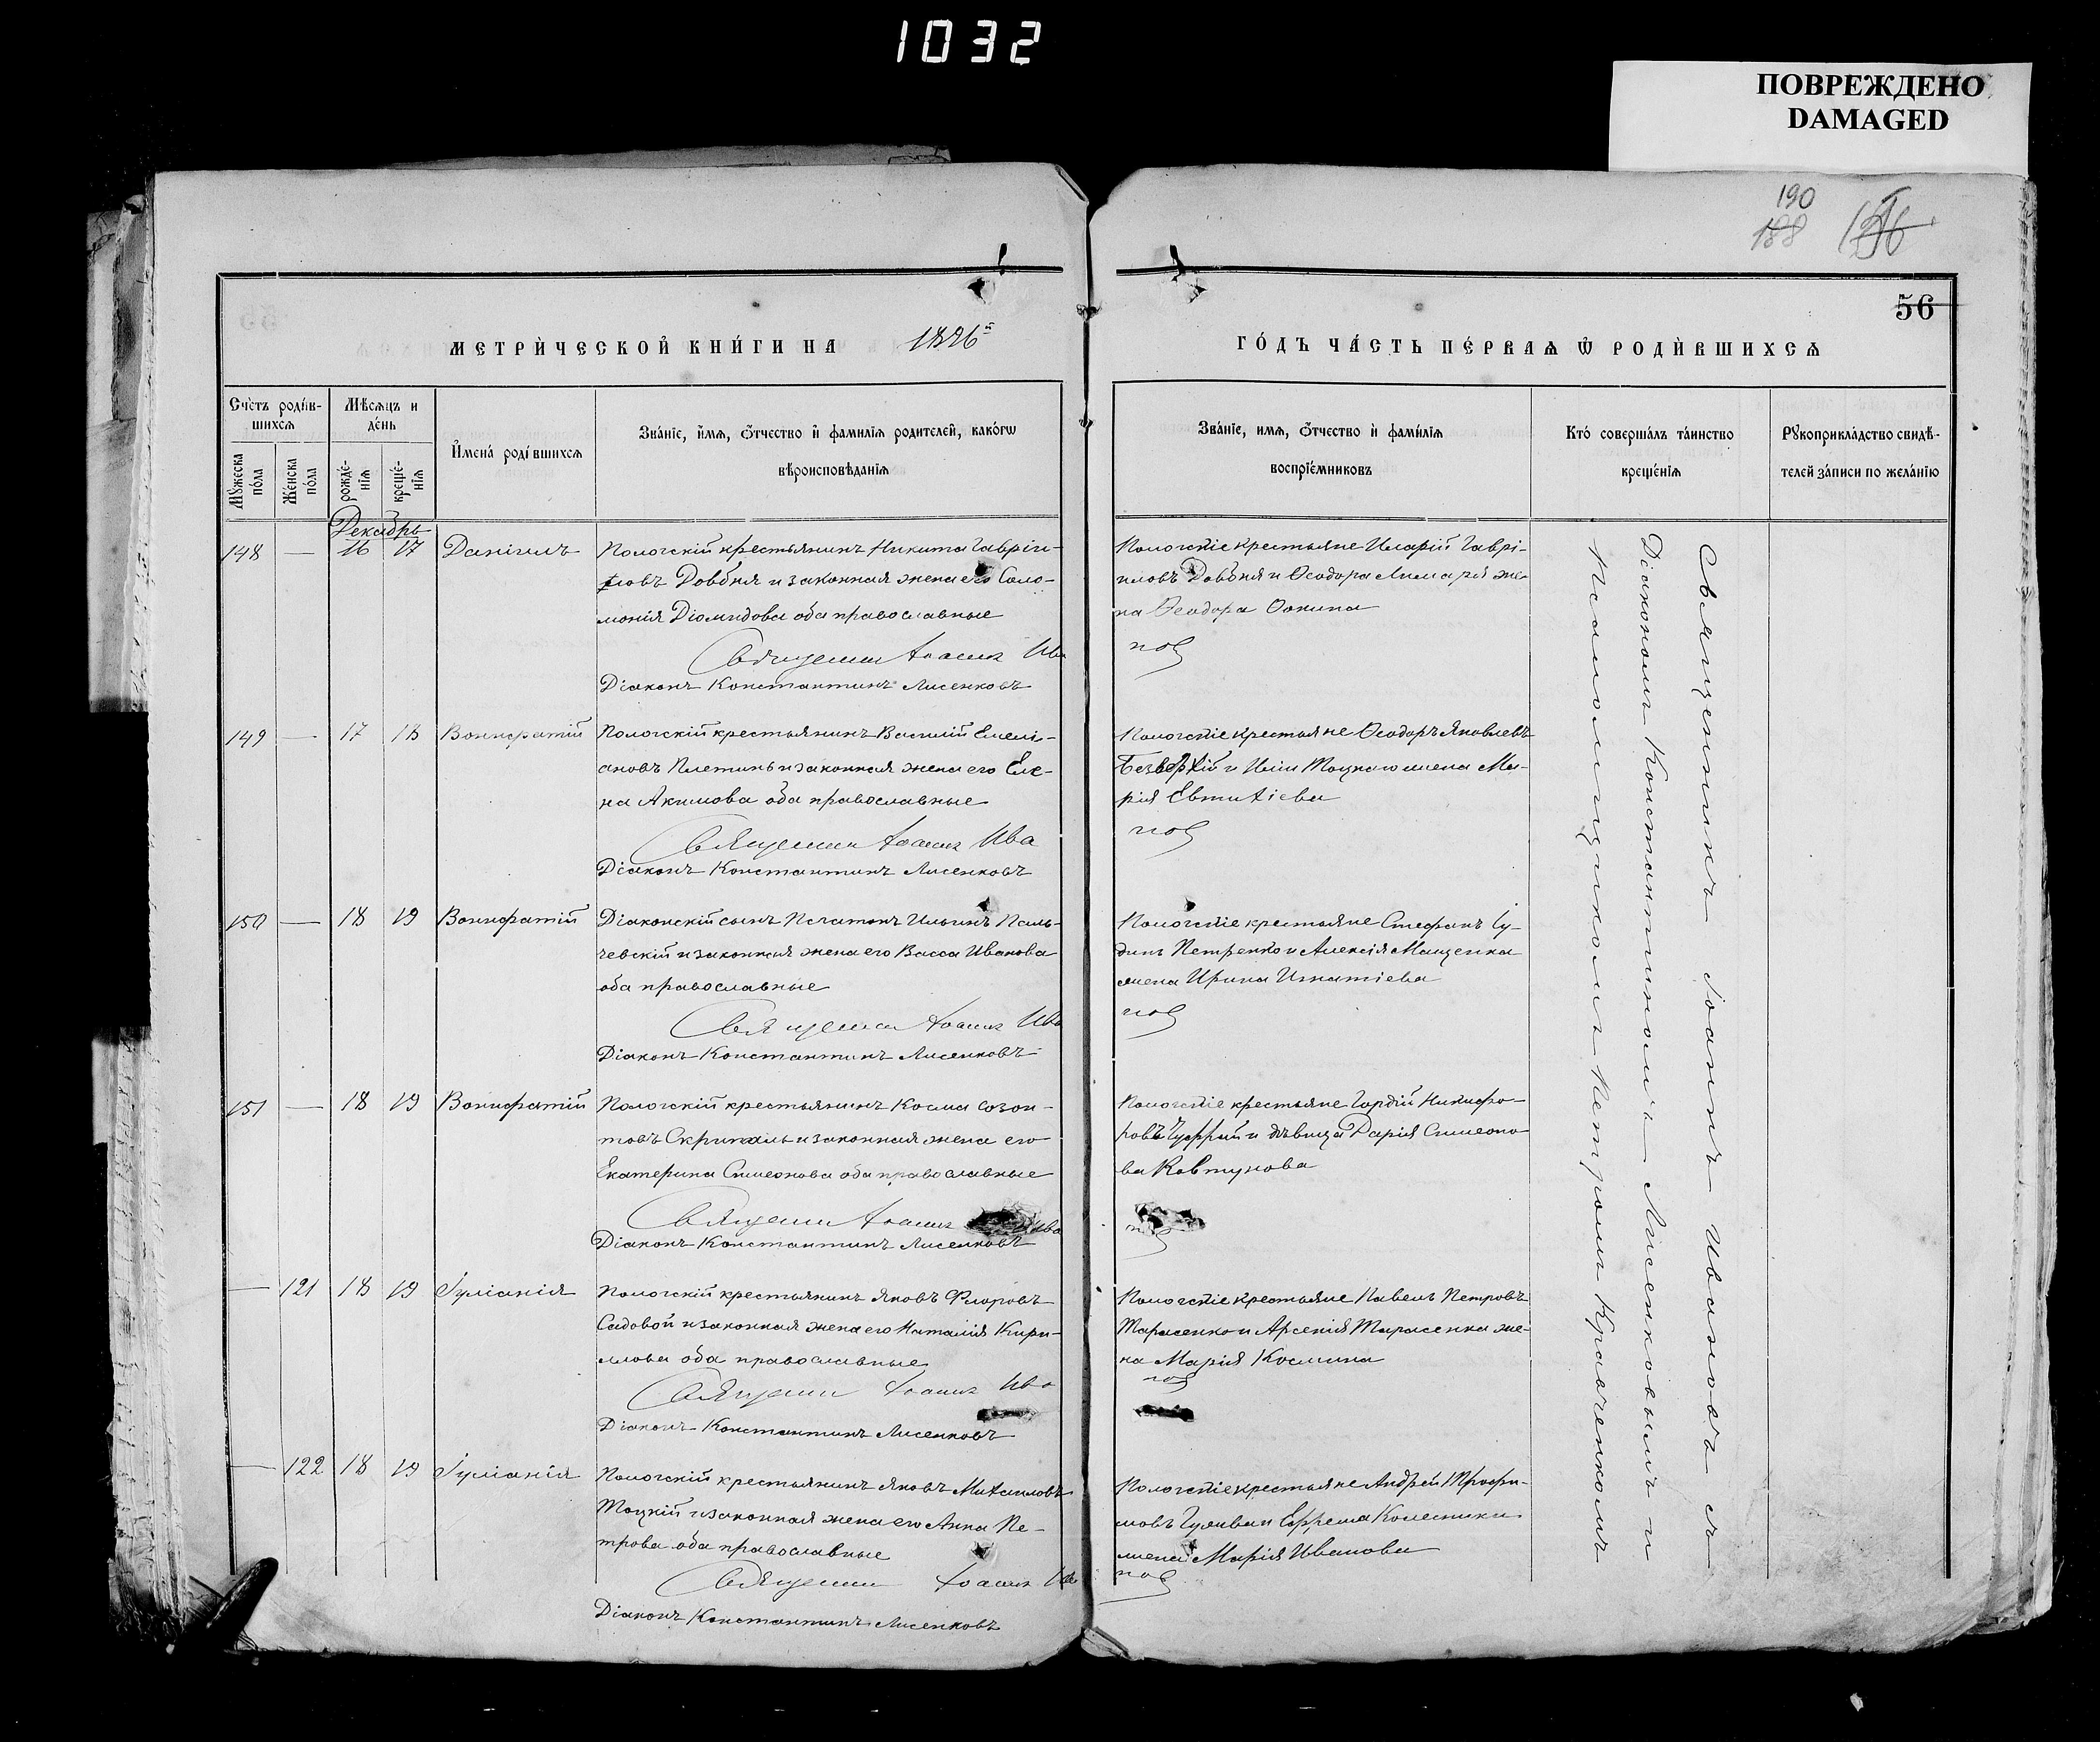 1032
ПОВРЕЖДЕНО
DAMAGED
190
188
56
МЕТРИ́ЧЕСКОЙ КНИ́ГИ НА 1896й
ГО́ДЪ ЧА́СТЬ ПЕ́РВАѦ Ѿ РОДИ́ВШИХСѦ
Счетъ роди́в-
шихсѧ
Мѣсѧцъ и
де́нь
Мꙋ́жеска по́ла
Же́нска по́ла
рожде́-
нїѧ
креще́-
нїѧ
И҆мена́ роди́вшихсѧ
Зва́нїе, и҆́мѧ, ѻ҆́тчество и҆ фами́лїѧ роди́телей, како́гѡ
вѣроисповѣ́данїѧ
Зва́нїе, имѧ, ѻ҆́тчество и҆ фами́лїѧ
воспрїе́мниковъ
Кто́ соверша́лъ та́инство
креще́нїѧ
Рꙋкоприкла́дство свидѣ́-
телей за́писи по жела́нїю
Декабрь
148 — 16 17 Даніилъ
Пологскій крестьянинъ Никита Гаврі-
иловъ Довбня и законная жена его Соло-
монія Діомидова оба православные
Священникъ Іоаннъ Ива
Діаконъ Константинъ Лисенковъ
Пологскіе крестьяне Иларій Гаврі-
иловъ Довбня и Ѳеодора Лимаря же-
на Ѳеодора Ѳокина
новъ
149 — 17 18 Вонифатій
Пологскій крестьянинъ Василій Емелі-
ановъ Плетинь и законная жена его Еле-
на Акимова оба православные
Священникъ Іоаннъ Ива
Діаконъ Константинъ Лисенковъ
Пологскіе крестьяне Ѳеодоръ Яковлевъ
Безверхій и Иліи Тоцкаго жена Ма-
рія Евтихіева
новъ
150 — 18 19 Вонифатій
Діаконскій сынъ Платонъ Ильинъ Паль-
чевскій и законная жена его Васса Иванова
оба православные
Священникъ Іоаннъ Ива
Діаконъ Константинъ Лисенковъ
Пологскіе крестьяне Стефанъ Іу-
динъ Петренко и Алексія Мащенка
жена Ирина Игнатіева
новъ
151 — 18 19 Вонифатій
Пологскій крестьянинъ Косма Созон-
товъ Скрипаль и законная жена его
Екатерина Симеонова оба православные
Священникъ Іоаннъ Ива
Діаконъ Константинъ Лисенковъ
Пологскіе крестьяне Гордій Никифо-
ровъ и дѣвица Дарія Симеоно-
ва Ковтунова
новъ
— 121 18 19 Іуліанія
Пологскій крестьянинъ Яковъ Флоровъ
Садовой и законная жена его Наталія Кири-
ллова оба православные
Священникъ Іоаннъ Ива
Діаконъ Константинъ Лисенковъ
Пологскіе крестьяне Павелъ Петровъ
Тарасенко и Арсенія Тарасенка же-
на Марія Космина
новъ
— 122 18 19 Іуліанія
Пологскій крестьянинъ Яковъ Михаиловъ
Тоцкій и законная жена его Анна Пе-
трова оба православные
Священникъ Іоаннъ Ива
Діаконъ Константинъ Лисенковъ
Пологскіе крестьяне Андрей Трофи-
мовъ и Ефрема Колесника
жена Марія Иванова
новъ
Священникъ Іоаннъ Ивановъ съ
Діакономъ Константиномъ Лисенковымъ и
Псаломщикомъ Петромъ Кравченкомъ